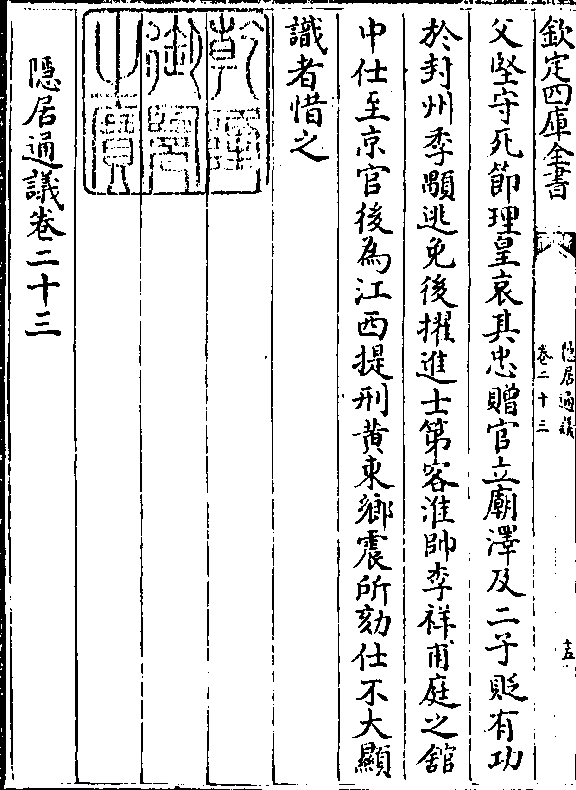 欽定四庫全書
隱居通議
卷二十三
十五
父堅守死節理皇哀其忠贈官立廟澤及二子貶有功
於封州季顒逃免後擢進士第客淮帥李祥甫庭之舘
中仕至京官後為江西提刑黄東鄉震所劾仕不大顯
識者惜之
乾隆
御覽
之寶
隱居通議卷二十三